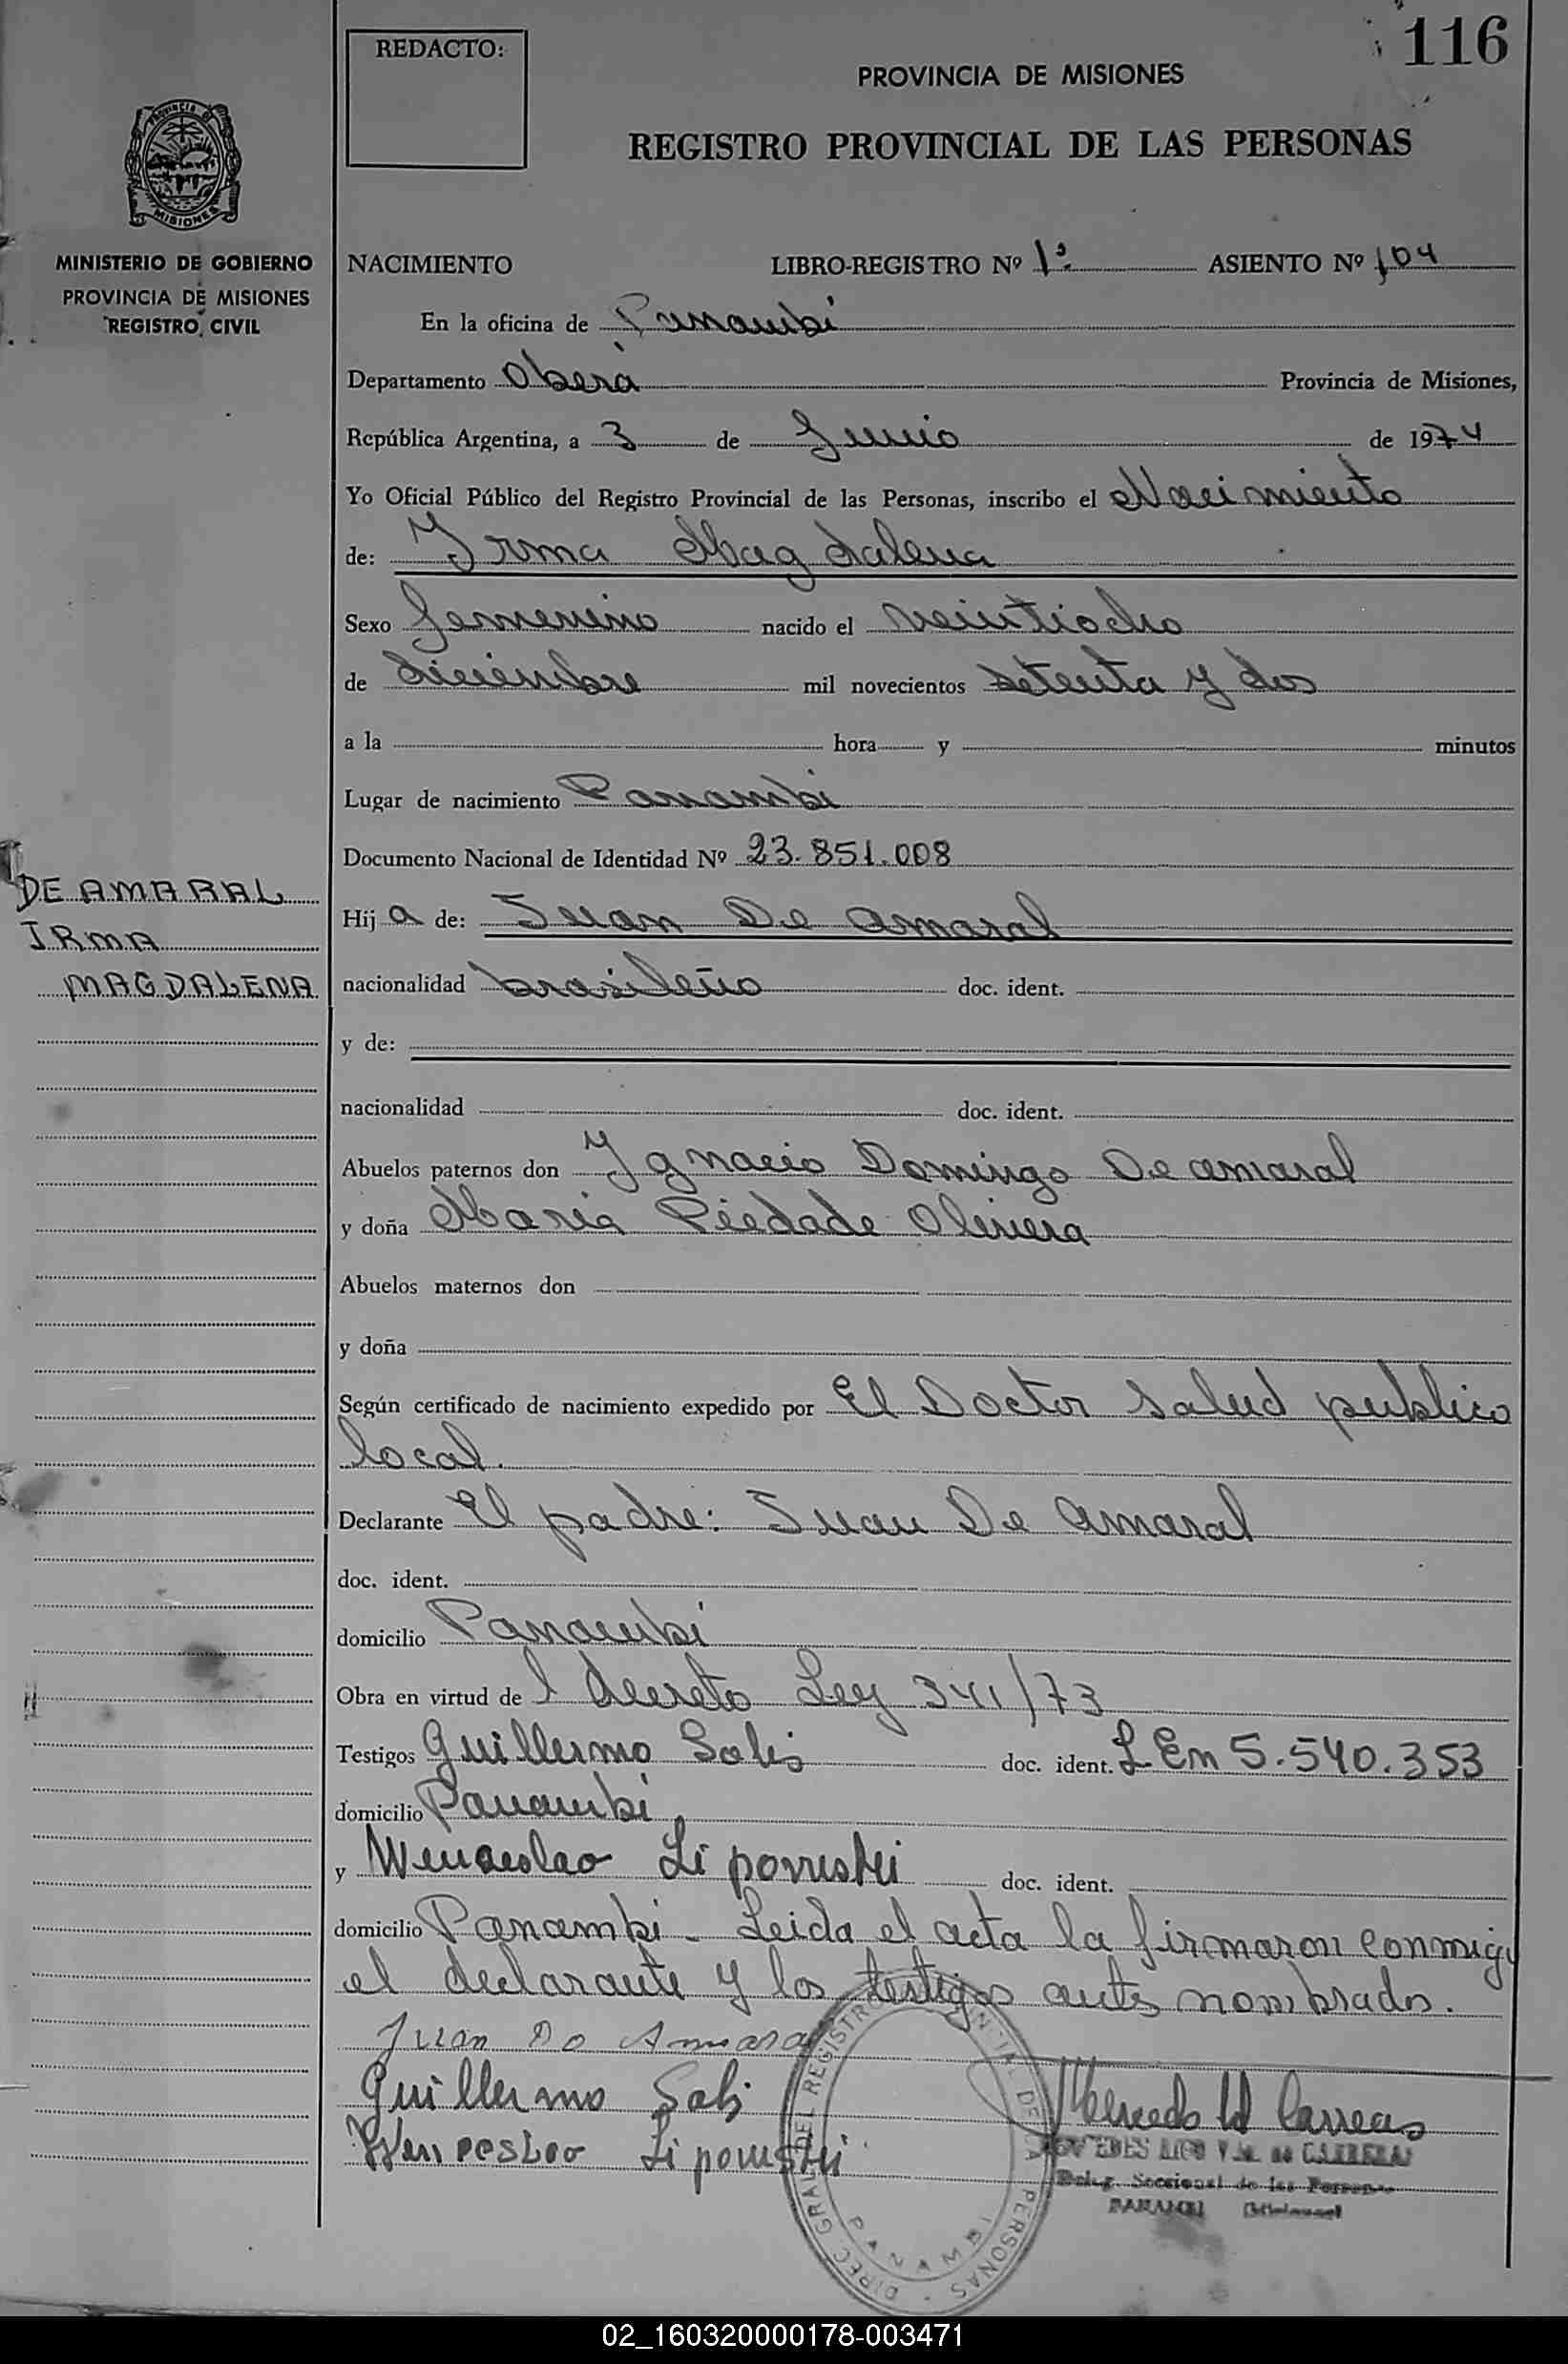 116
REDACTO:
PROVINCIA DE MISIONES
REGISTRO PROVINCIAL DE LAS PERSONAS
PROVINCIA DE
MISIONES
MINISTERIO DE GOBIERNO
PROVINCIA DE MISIONES
REGISTRO CIVIL
NACIMIENTO LIBRO-REGISTRO Nº 1º ASIENTO Nº 104
En la oficina de Panambi
Departamento Oberá Provincia de Misiones,
República Argentina, a 3 de Junio de 1974
Yo Oficial Público del Registro Provincial de las Personas, inscribo el Nacimiento
de: Yrma Magdalena
Sexo femenino nacido el veintiocho
de diciembre mil novecientos setenta y dos
a la hora y minutos
Lugar de nacimiento Panambi
Documento Nacional de Identidad Nº 23.851.008
DE AMARAL
IRMA
MAGDALENA
Hij a de: Juan De Amaral
nacionalidad brasileño doc. ident.
y de:
nacionalidad doc. ident.
Abuelos paternos don Ygnacio Domingo De amaral
y doña Maria Piedade Olivera
Abuelos maternos don
y doña
Según certificado de nacimiento expedido por El Doctor Salud publico
local.
Declarante El padre: Juan De Amaral
doc. ident.
domicilio Panambi
Obra en virtud de l decreto Ley 341/73
Testigos Guillermo Solis doc. ident. L Em 5.540.353
domicilio Panambi
y Wenceslao Li povuski doc. ident.
domicilio Panambi - Leida el acta la firmaron conmigo
el declarante y los testigos antes nombrados.
Juan Do Amaral
Guillermo Solis
Wenceslao Li povuski
DIREC GRAL DEL REGISTRO DE LAS PERSONAS
PANAMBI
DE CARRERAS
Deleg. Seccional de las Personas
PANAMBI (Misiones)
02_160320000178-003471